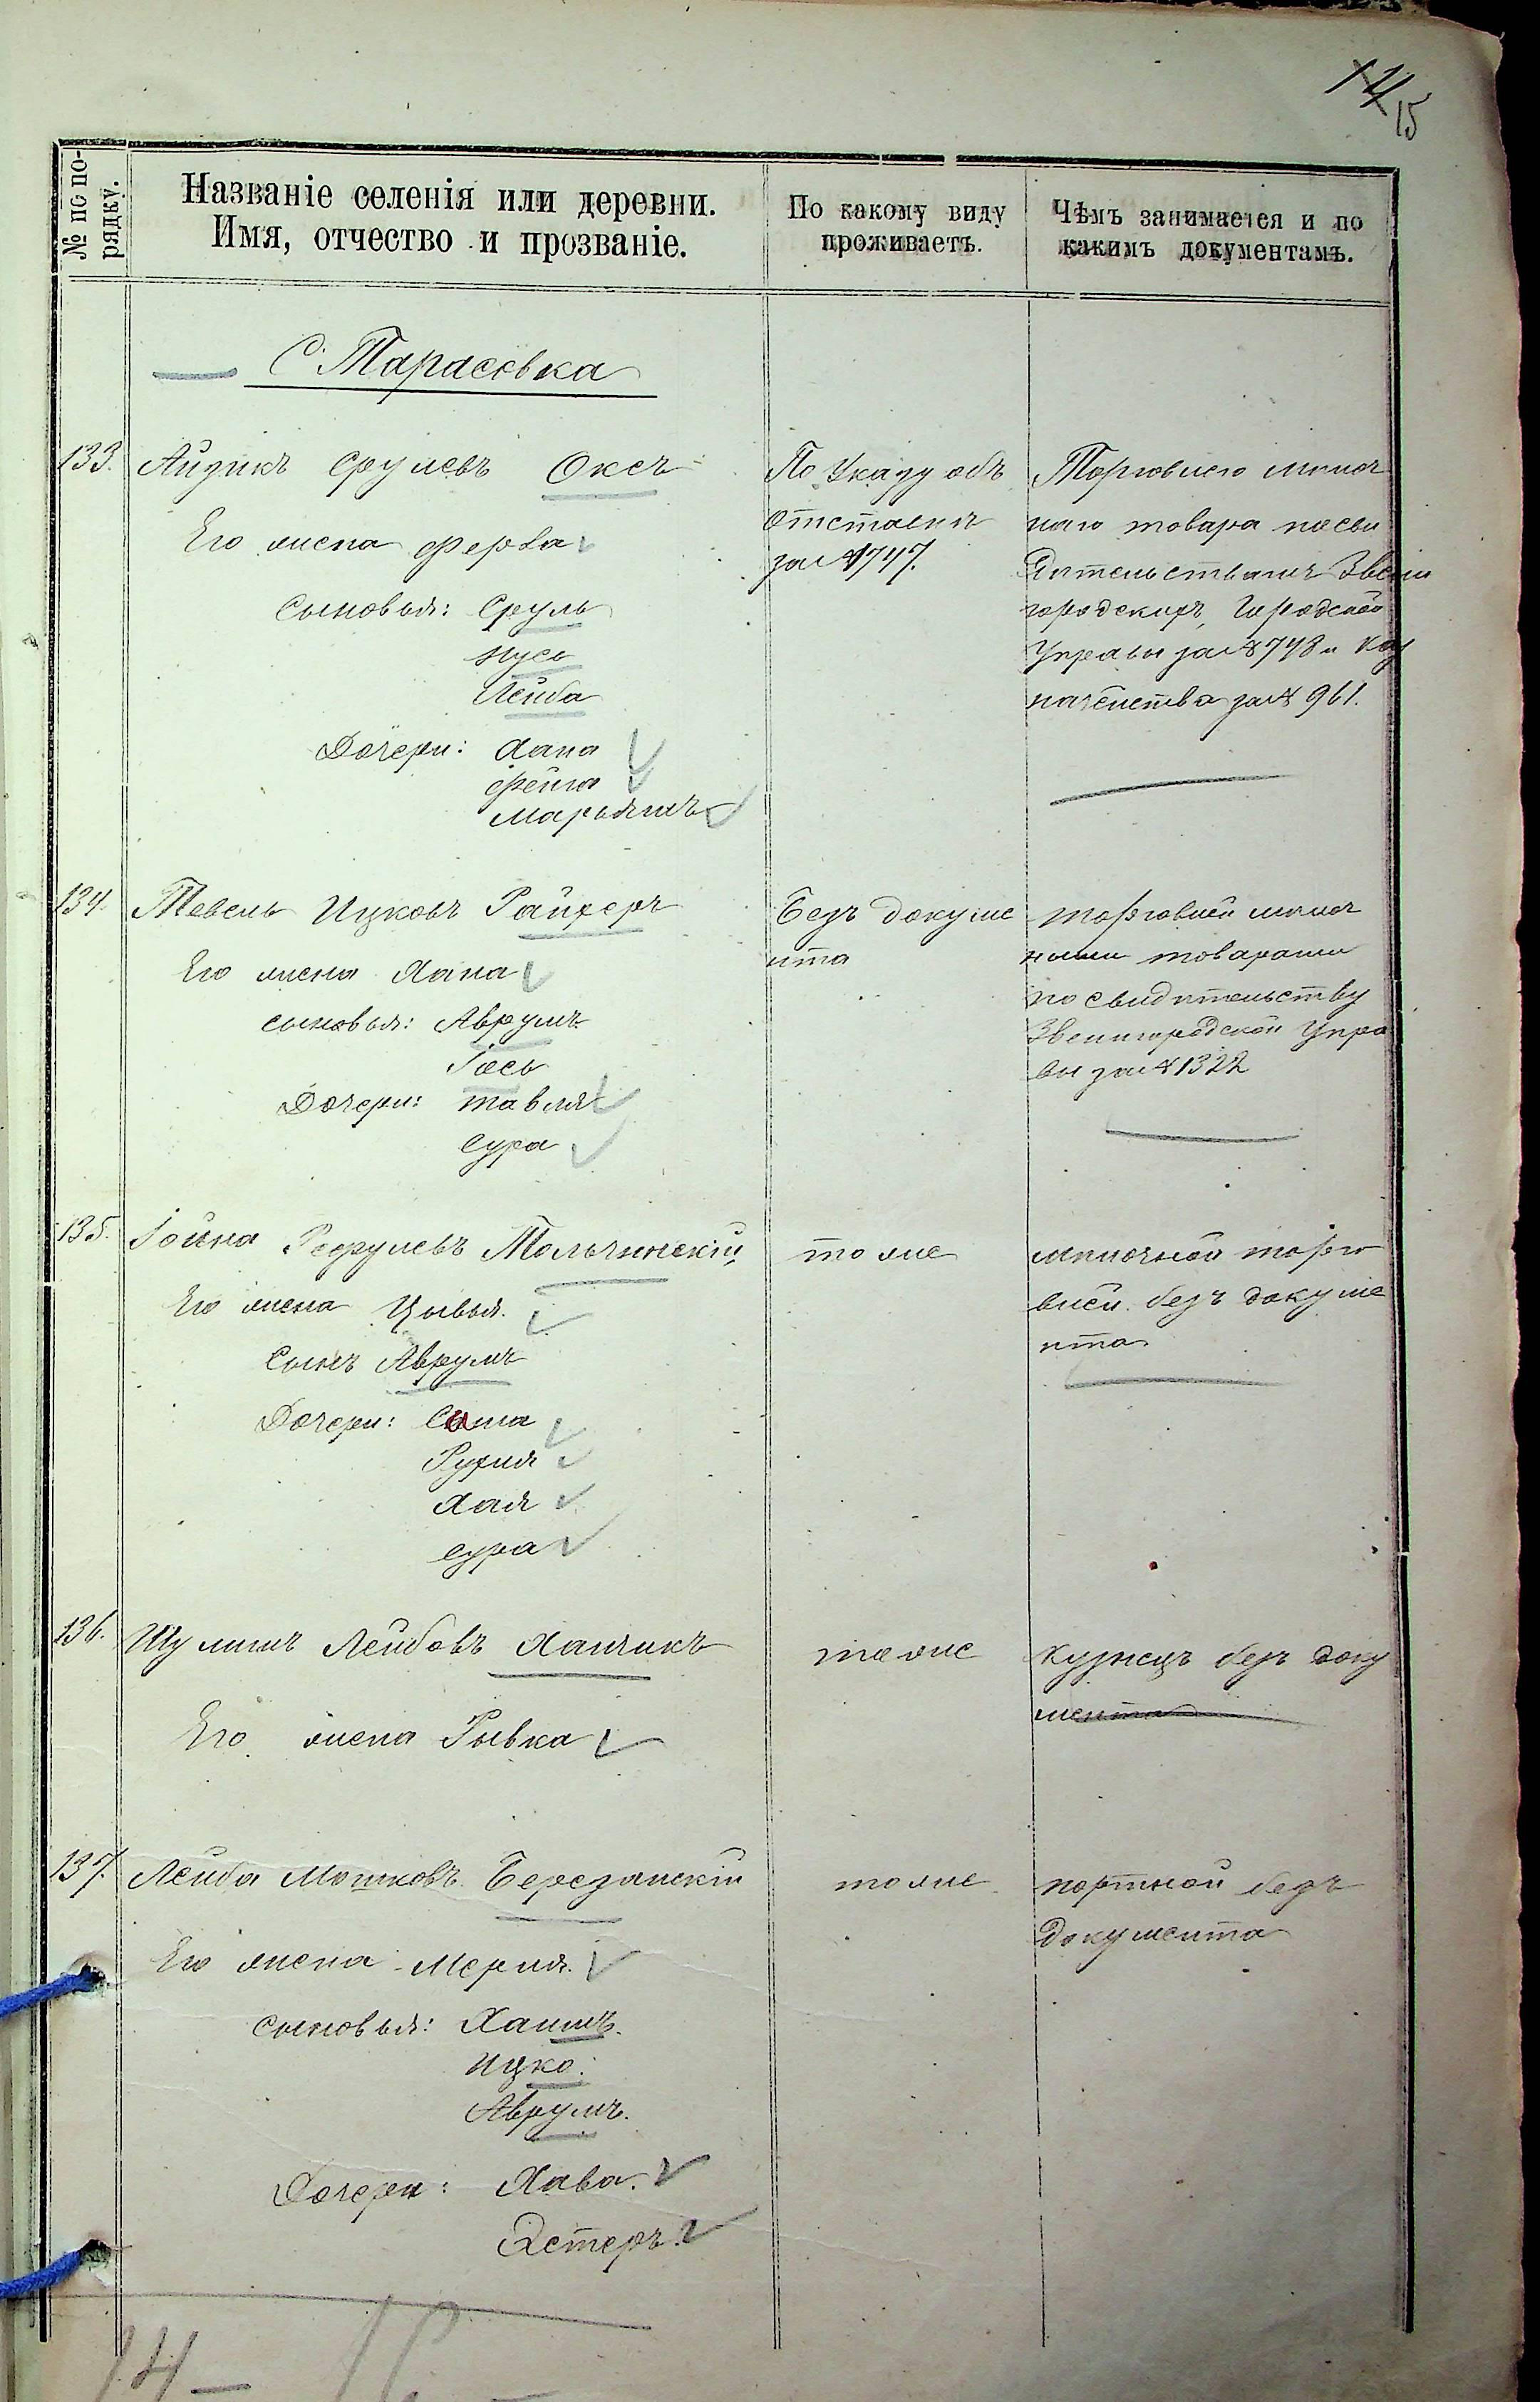 14 15
№ по по-
рядку.
Названіе селенія или деревни.
Имя, отчество и прозваніе.
По какому виду
проживаетъ.
Чѣмъ занимается и по
какимъ документамъ.
С. Тарасовка
133. Айзикъ Срулевъ Оксъ
Его жена
Сыновья: Сруль
Нусь
Лейба
Дочери: Хана
Фейга
Марьямъ
По Указу объ
Отставкѣ
за № 1747.
Торговлею мелоч
наго товара по сви
дѣтельствамъ Звени
городскихъ, Городской
Управы за № 748 и Каз
начейства за № 961.
134. Тевель Ицковъ Райхеръ
Его жена Хана
сыновья: Аврумъ
Іось
Дочери: Тавля
Сура
Безъ докуме
нта
торговлей мелоч
ными товарами
по свидѣтельству
Звенигородской Упра
вы за № 1322
135. Іойна Тольчинскій
Его жена Цывья.
Сынъ Аврумъ
Дочери:
Рухля
Хая
Сура
тоже
мѣлочной торго
влей. безъ докуме
нта
136. Шулимъ Лейбовъ Хаитикъ
Его жена Рывка
тоже
Кузнецъ безъ доку
мента
137. Лейба Мошковъ Березанскій
Его жена Мерля.
сыновья: Хаимъ.
Ицко.
Аврумъ.
Дочери: Хава.
Эстеръ.
тоже
портной безъ
документа
14 –